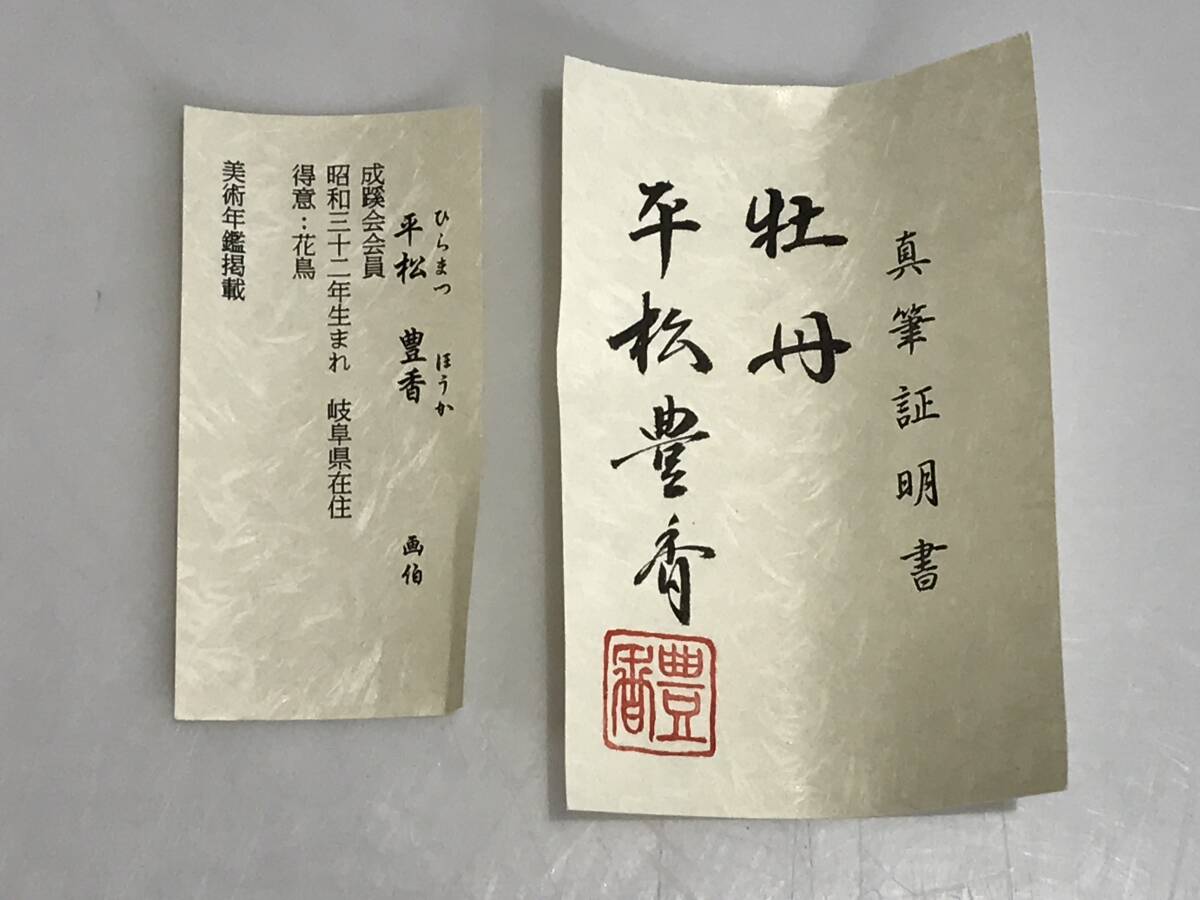 ひらまつ ほうか
平松 豊香 画伯
成蹊会会員
昭和三十二年生まれ 岐阜県在住
得意：花鳥
美術年鑑掲載
真筆証明書
牡丹
平松豊香
豊香